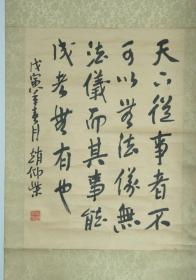 天下從事者不
可以無法儀無
法儀而其事能
成者無有也
戊寅年春月趙仰